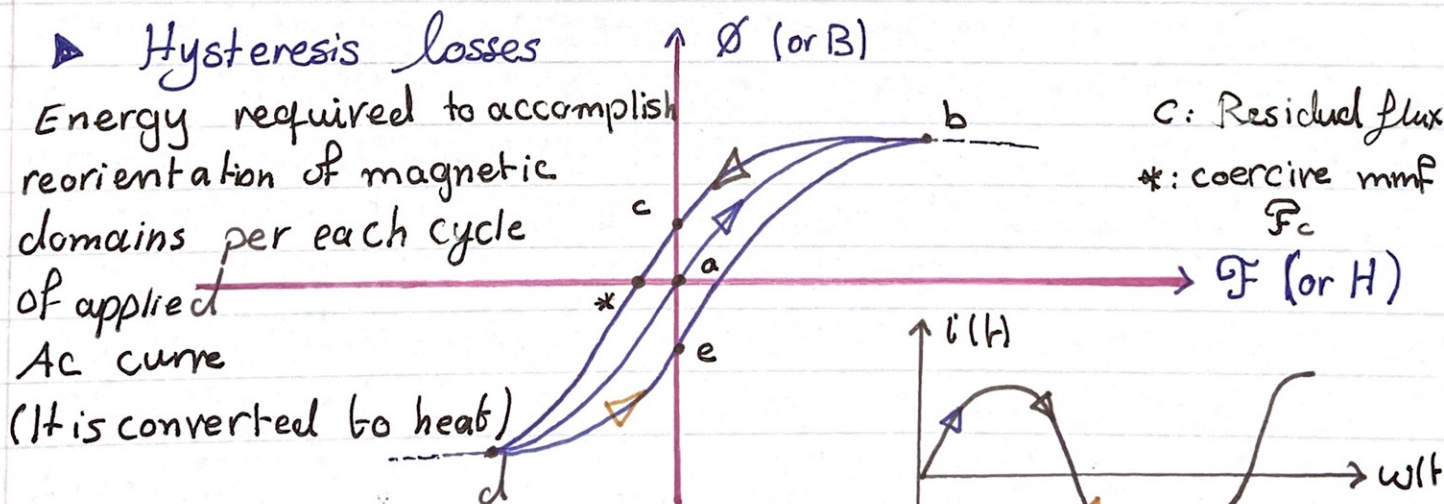 ▶ Hysteresis losses
Energy required to accomplish
reorientation of magnetic
domains per each cycle
of applied
Ac curve
(It is converted to heat)
Ø (or B)
b
c
a
*
e
d
C: Residual flux
*: coercive mmf
Fc
F (or H)
i(t)